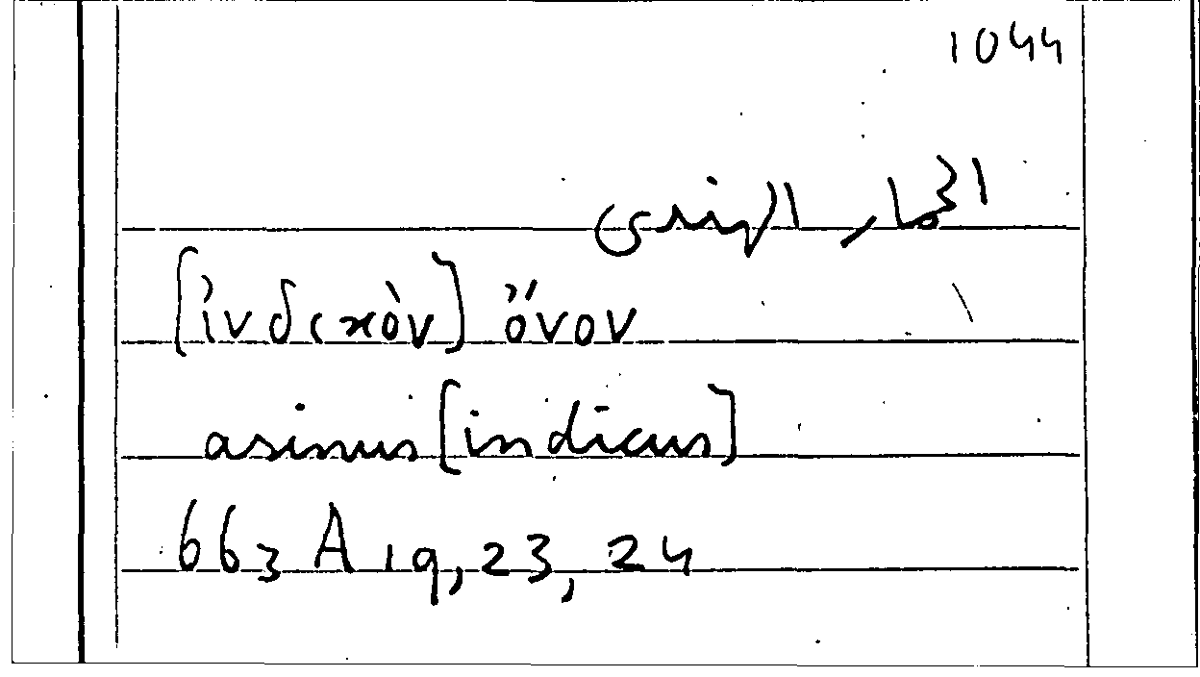 1044
[ἰνδικὸν] ὄνον
asinus [indicus]
663 A 19, 23, 24